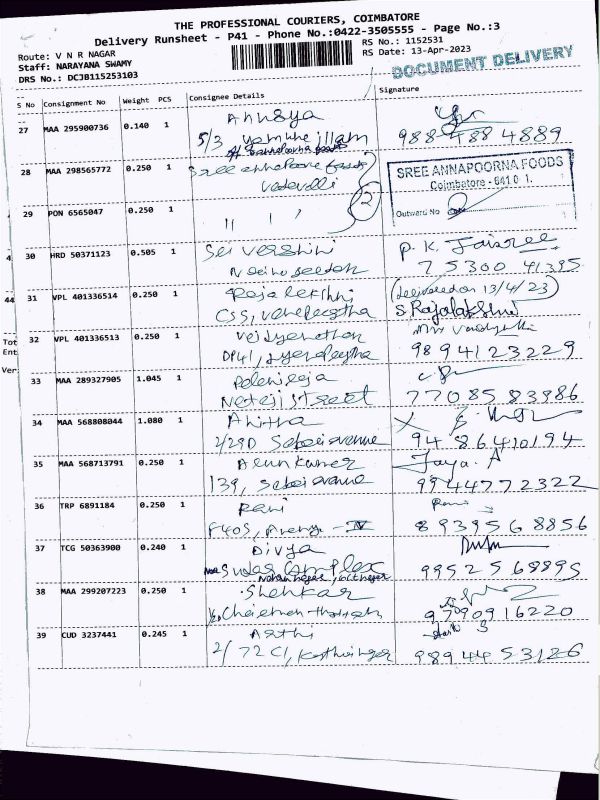 THE PROFESSIONAL COURIERS, COIMBATORE
Delivery Runsheet - P41 - Phone No.:0422-3505555 - Page No.:3
Route: V N R NAGAR
Staff: NARAYANA SWAMY
DRS No.: DCJB115253103
RS No.: 1152531
RS Date: 13-Apr-2023
DOCUMENT DELIVERY
S No Consignment No Weight PCS Consignee Details Signature
27 MAA 295900736 0.140 1 Anusya
5/3 illam 988 488 4889
28 MAA 298565772 0.250 1 Sree annapoorna foods
Vadavalli
SREE ANNAPOORNA FOODS
Coimbatore - 641 0
Outward No
29 PON 6565047 0.250 1 11 1 ' 2
30 HRD 50371123 0.505 1 Sai Varshini P. K. Jaisree
75300 41395
31 VPL 401336514 0.250 1 Rajalakshmi (Delivered on 13/4/23)
C55, S Rajalakshmi
32 VPL 401336513 0.250 1 Vaidyanathan
DP41, 98941 23229
33 MAA 289327905 1.045 1 Palaniraja
Netaji street 77085 83986
34 MAA 568808044 1.080 1 Anitha
2/29D Sabari avenue 94 86410194
35 MAA 568713791 0.250 1 Arunkumar Jaya. A
139, Sabari avenue 9944772322
36 TRP 6891184 0.250 1 Rani Rani
F405, - IV 89395 68856
37 TCG 50363900 0.240 1 Divya
Complex 99525 68895
38 MAA 299207223 0.250 1 Shekhar
97909 16220
39 CUD 3237441 0.245 1 Arthi
2/72 C1, 98944 53126
44
Tot
Ent
Ver